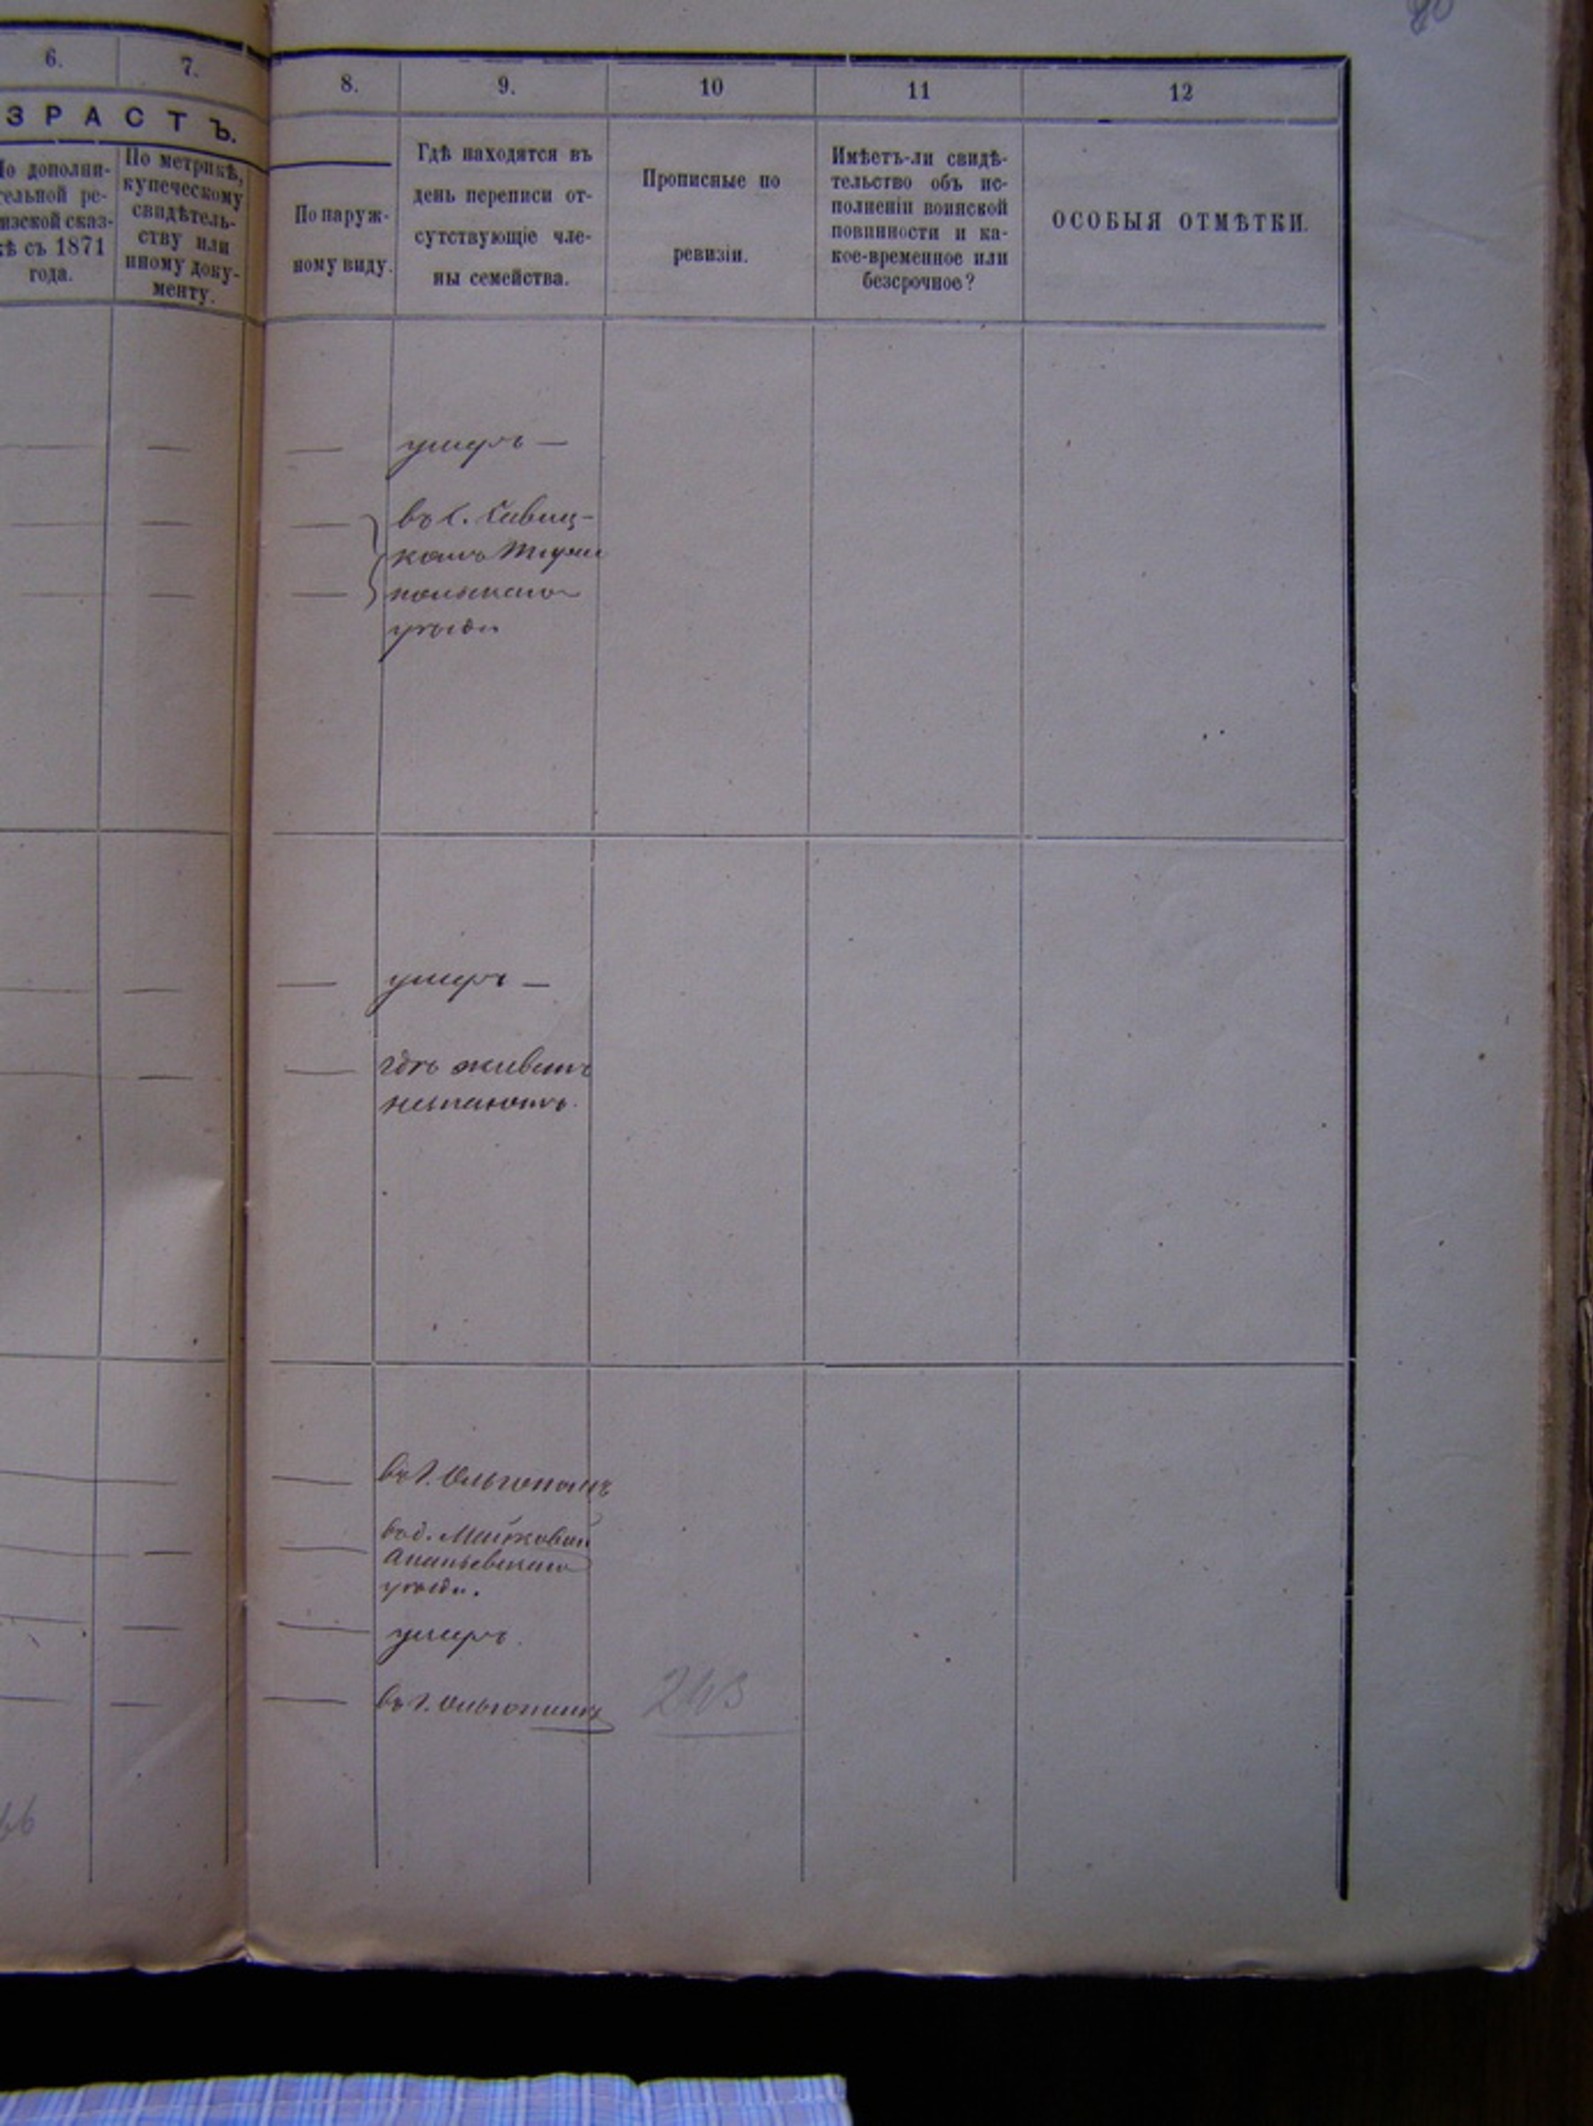 80
6.
7.
8.
9.
10
11
12
ЗРАСТЪ.
По дополни-
тельной ре-
визской сказ-
кѣ съ 1871
года.
По метрикѣ,
купеческому
свидѣтель-
ству или
иному доку-
менту.
По наруж-
ному виду.
Гдѣ находятся въ
день переписи от-
сутствующіе чле-
ны семейства.
Прописные по
ревизіи.
Имѣетъ-ли свидѣ-
тельство объ ис-
полненіи воинской
повинности и ка-
кое-временное или
безсрочное?
ОСОБЫЯ ОТМѢТКИ.
умеръ —
въ с. Савиц-
комъ
польскаго
уѣзда
умеръ —
гдѣ живетъ
незнаютъ.
въ г. Ольгополѣ
въ д.
Ананьевскаго
уѣзда.
умеръ.
въ г. Ольгополѣ
243